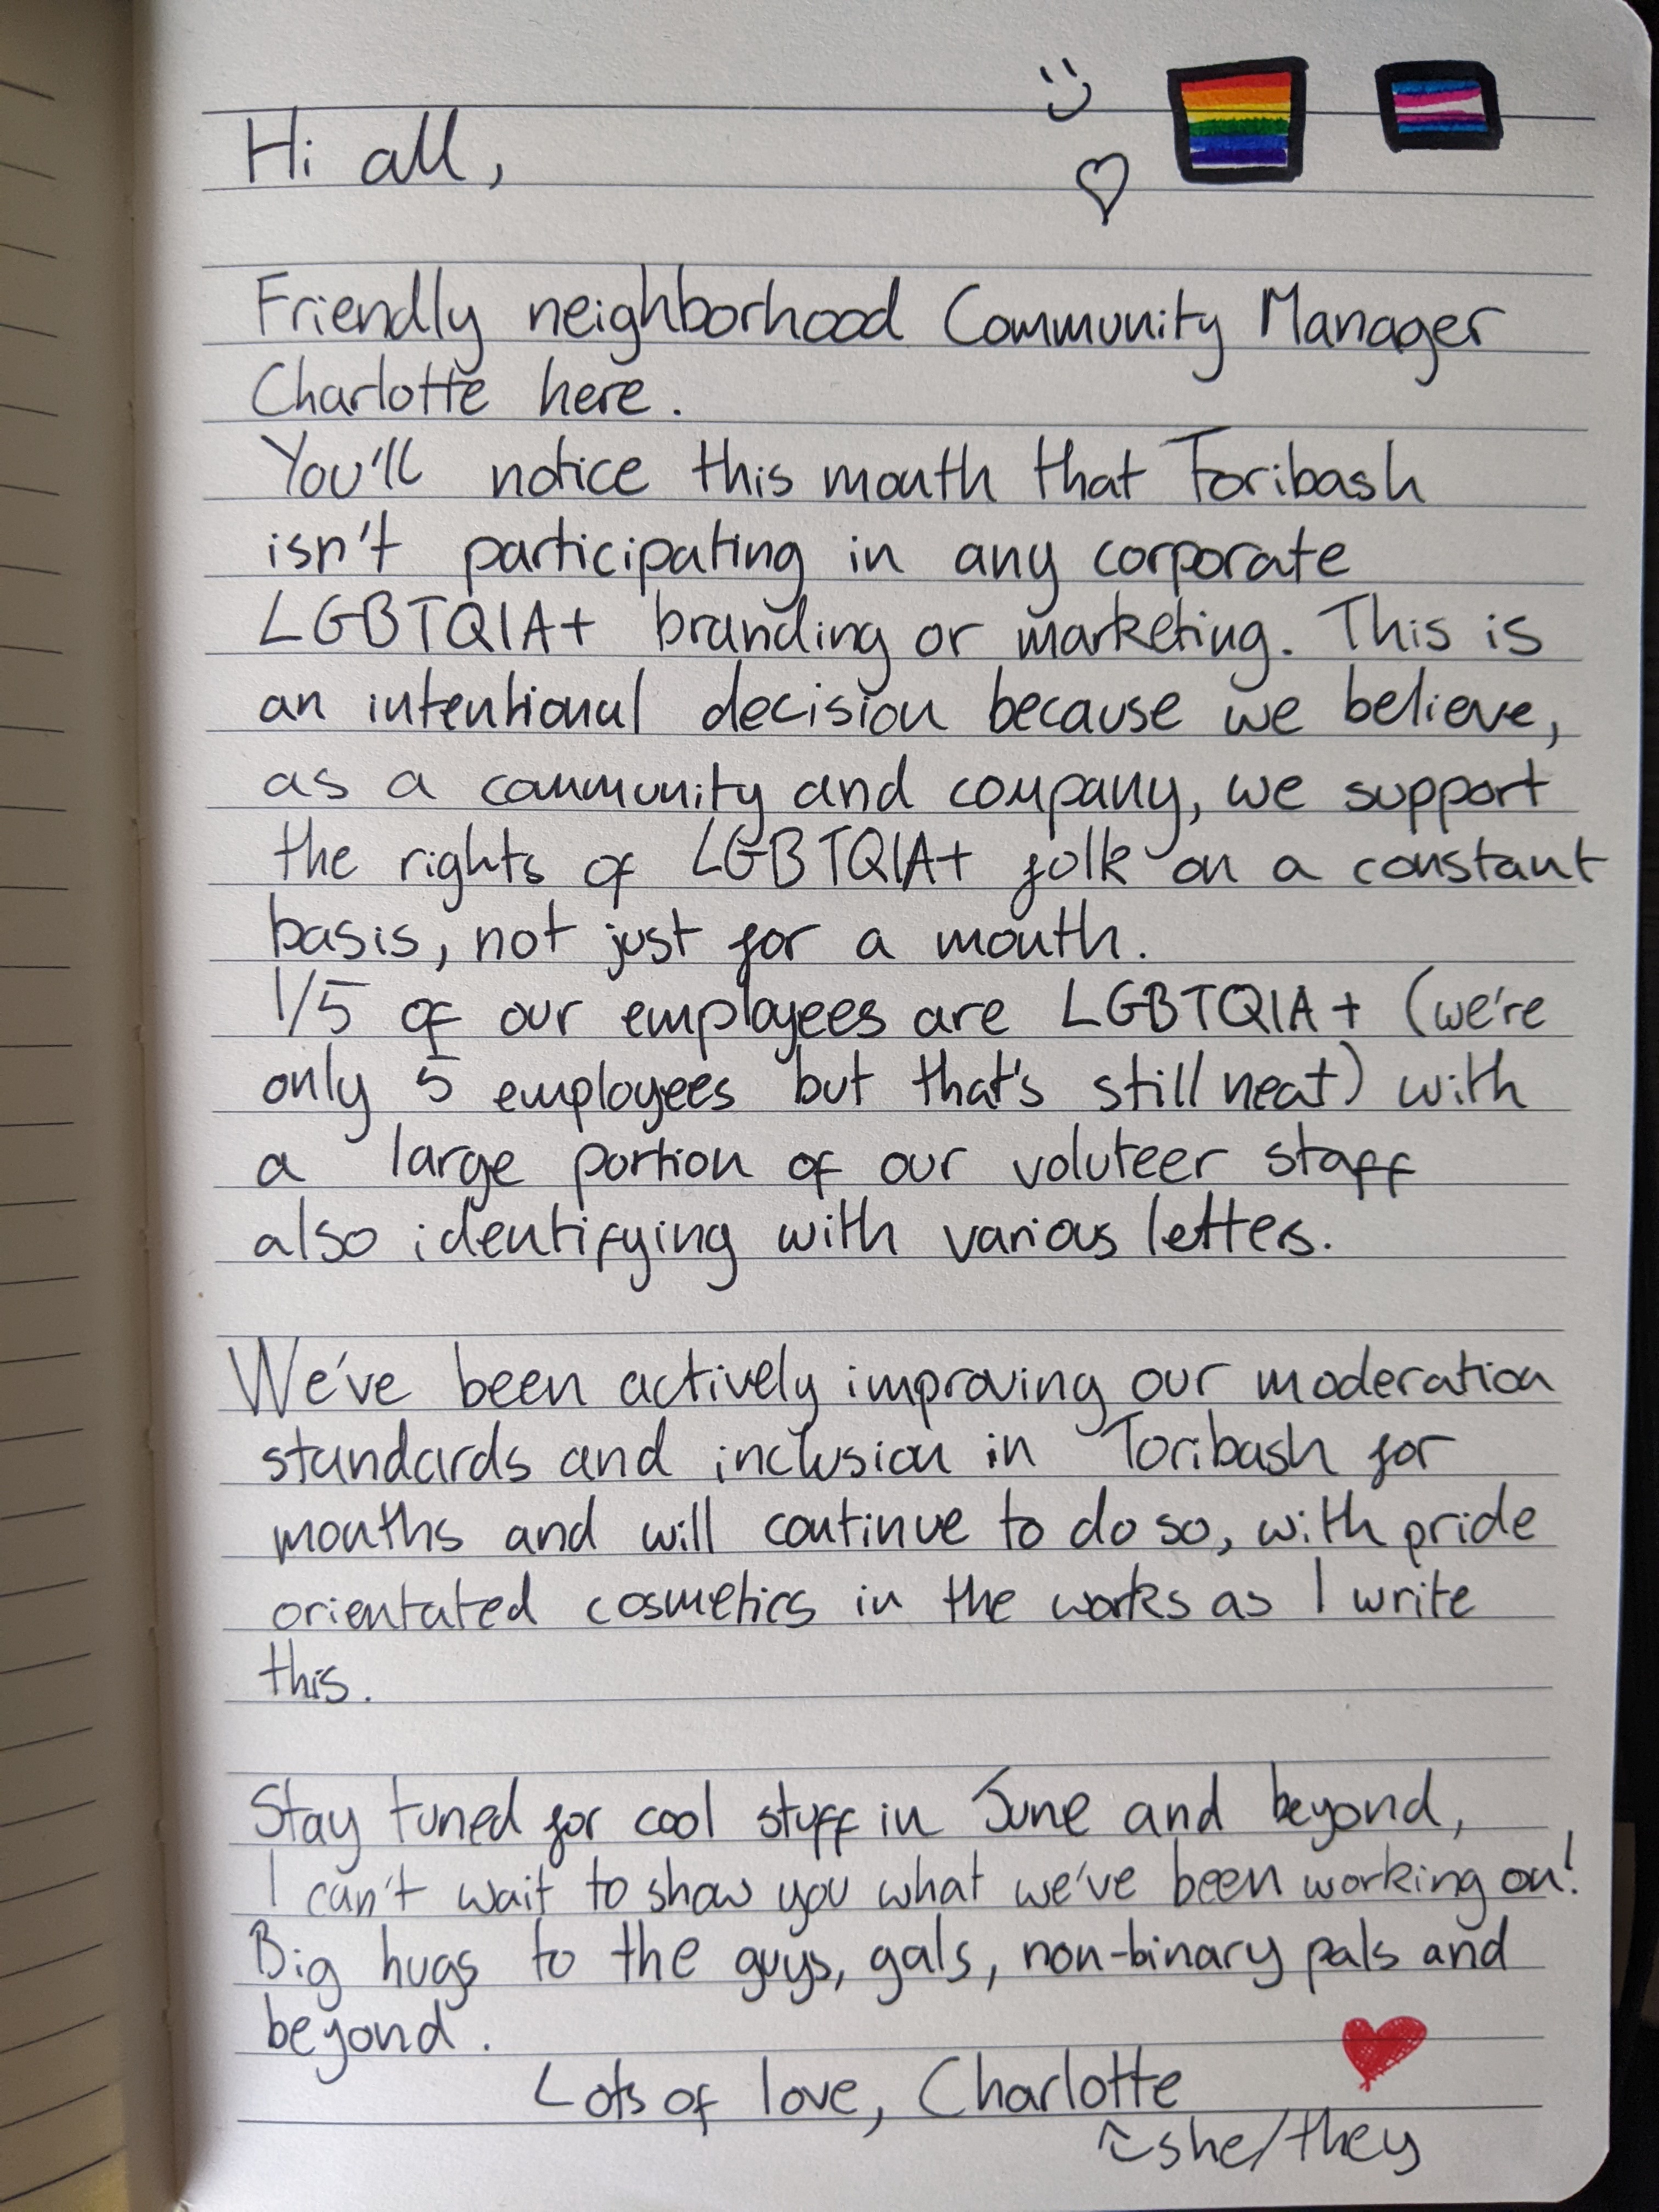 Hi all,
Friendly neighborhood Community Manager
Charlotte here.
You'll notice this month that Toribash
isn't participating in any corporate
LGBTQIA+ branding or marketing. This is
an intentional decision because we believe,
as a community and company, we support
the rights of LGBTQIA+ folk on a constant
basis, not just for a month.
1/5 of our employees are LGBTQIA+ (we're
only 5 employees but that's still neat) with
a large portion of our voluteer staff
also identifying with various letters.
We've been actively improving our moderation
standards and inclusion in Toribash for
months and will continue to do so, with pride
orientated cosmetics in the works as I write
this.
Stay tuned for cool stuff in June and beyond,
I can't wait to show you what we've been working on!
Big hugs to the guys, gals, non-binary pals and
beyond.
Lots of love, Charlotte
she/they